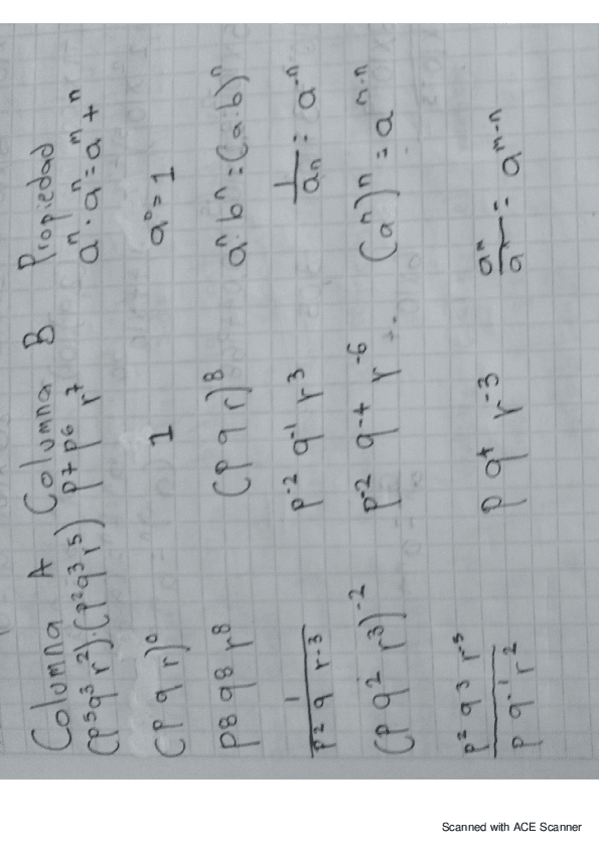 Columna A Columna B Propiedad
(p⁵q³r²)·(p²q³r⁵) p⁷p⁶r⁷ aⁿ·aⁿ=aᵐ+ⁿ
(p q r)⁰ 1 a⁰=1
p⁸q⁸r⁸ (p q r)⁸ aⁿ·bⁿ=(a·b)ⁿ
1/p² q r-3 p⁻² q⁻¹ r³ 1/aₙ = a⁻ⁿ
(p q² r³)⁻² p⁻² q⁻⁴ r⁻⁶ (aⁿ)ⁿ = aᵐ·ⁿ
p² q³ r⁻⁵/p q⁻¹ r² p q⁺ r⁻³ aⁿ/aⁿ = aᵐ⁻ⁿ
Scanned with ACE Scanner